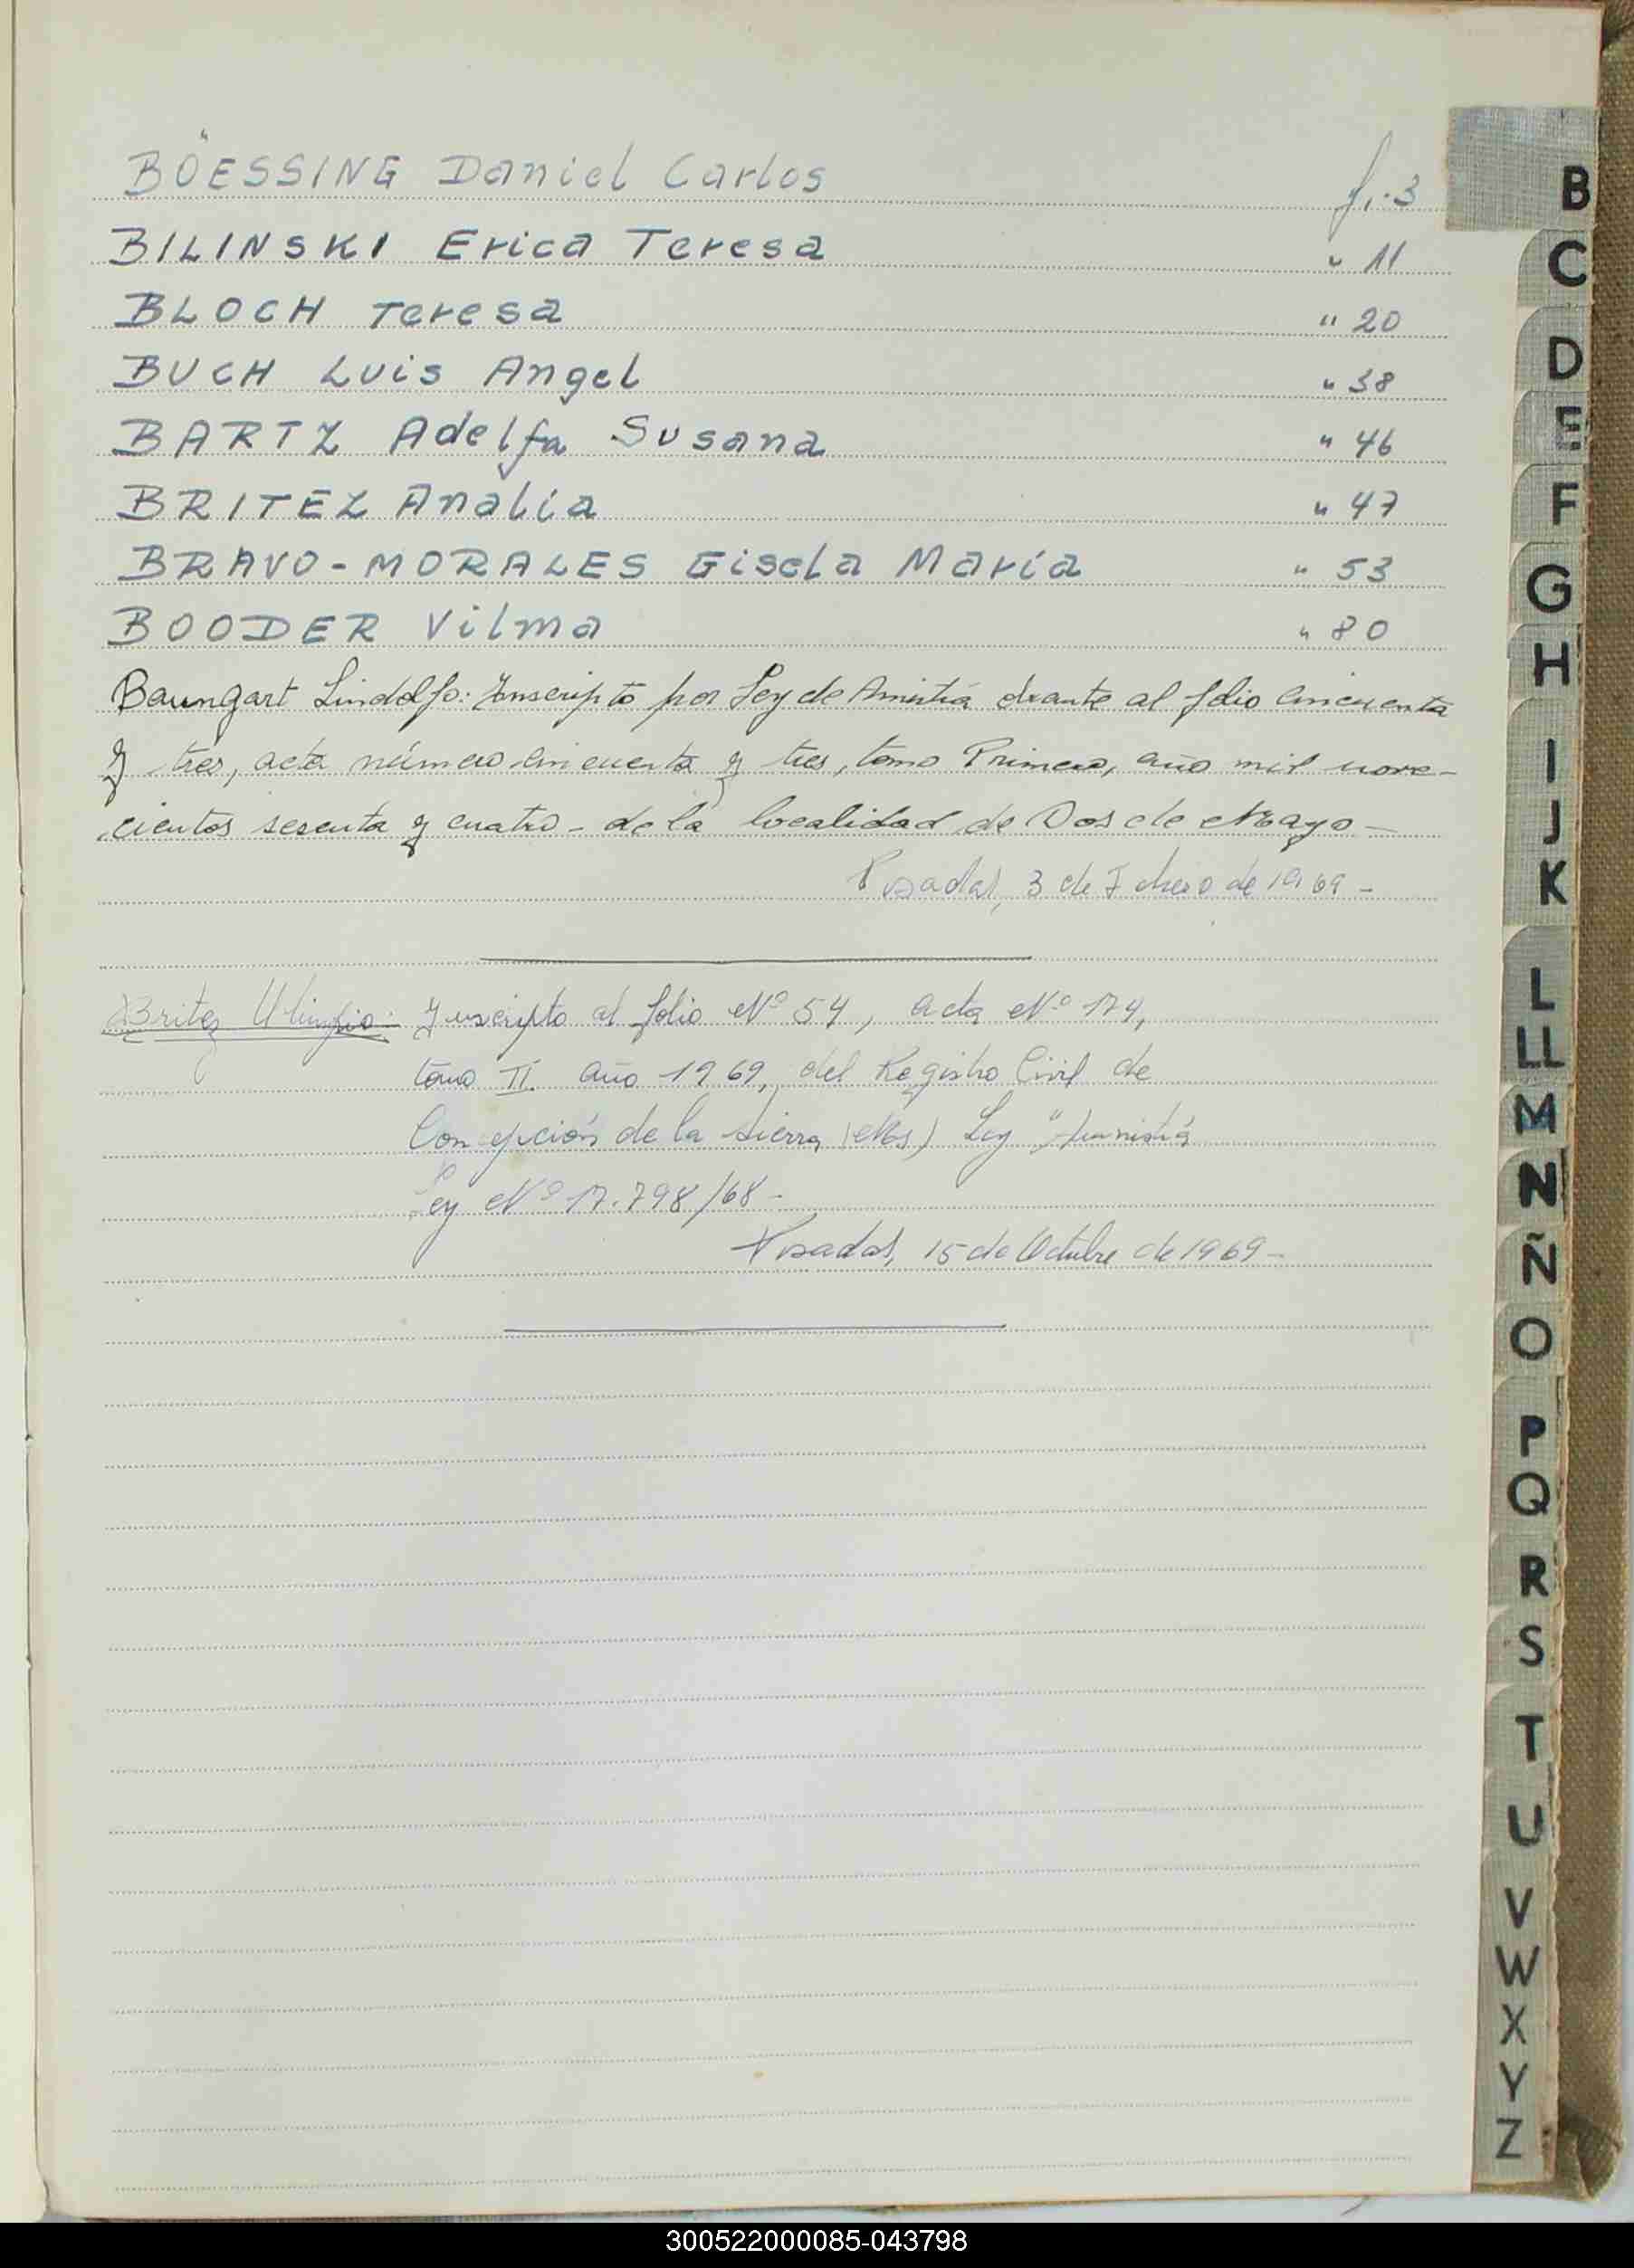 BÖESSING Daniel Carlos f. 3
BILINSKI Erica Teresa " 11
BLOCH Teresa " 20
BUCH Luis Angel " 38
BARTZ Adelfa Susana " 46
BRITEZ Analia " 47
BRAVO-MORALES Gisela María " 53
BOODER Vilma " 80
Baumgart Lindolfo: Inscripto por Ley de Amistía obrante al folio cincuenta
y tres, acta número cincuenta y tres, tomo Primero, año mil nove-
cientos sesenta y cuatro - de la localidad de Dos de Mayo -
Posadas, 3 de de 1969 -
Britez Olimpio: Inscripto al folio Nº 54, acta Nº 174,
tomo II. año 1969, del Registro Civil de
Concepción de la Sierra (Mns) Ley "Amnistía
Ley Nº 17.798/68 -
Posadas, 15 de Octubre de 1969 -
B
C
D
E
F
G
H
I
J
K
L
LL
M
N
Ñ
O
P
Q
R
S
T
U
V
W
X
Y
Z
300522000085-043798